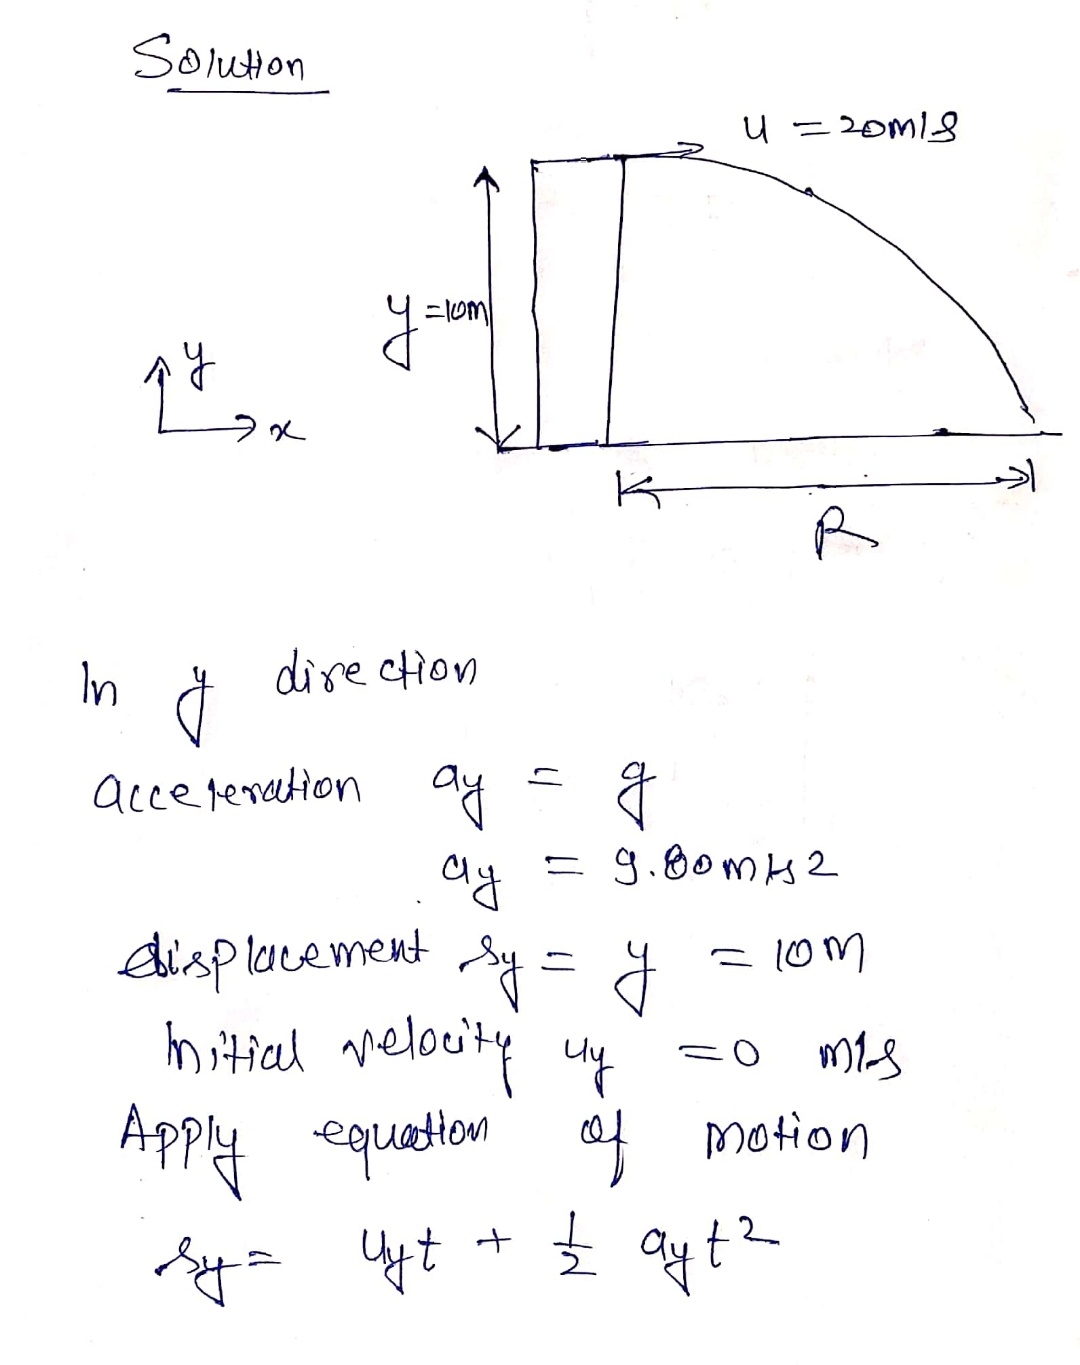 Solution
u = 20m/s
y = 10m
y
x
R
In y direction
acceleration ay = g
ay = 9.80 m/s2
displacement sy = y = 10m
Initial velocity uy = 0 m/s
Apply equation of motion
sy = uyt + 1/2 ayt2